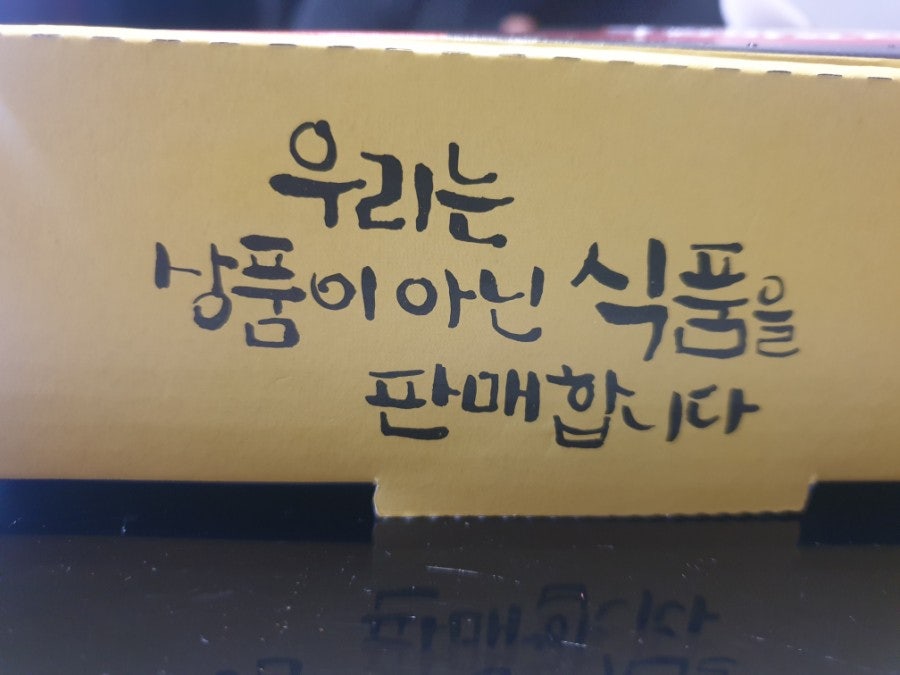 우리는
상품이 아닌 식품을
판매합니다